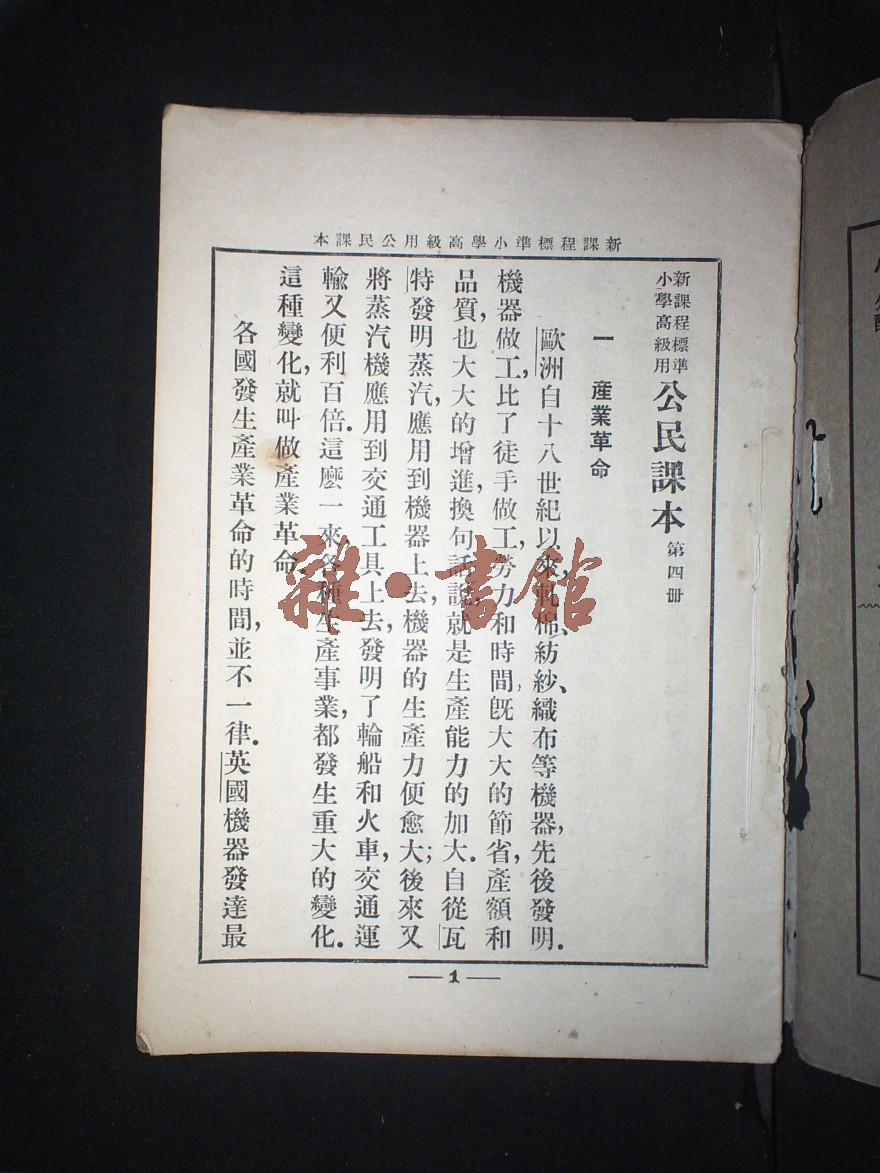 新課程標準小學高級用公民課本
新課程標準
小學高級用
公民課本 第四册
一 產業革命
歐洲自十八世紀以來,軋棉、紡紗、織布等機器,先後發明.
機器做工,比了徒手做工,勞力和時間,旣大大的節省,產額和
品質,也大大的增進,換句話說,就是生產能力的加大.自從瓦
特發明蒸汽,應用到機器上去,機器的生產力便愈大;後來又
將蒸汽機應用到交通工具上去,發明了輪船和火車,交通運
輸又便利百倍.這麽一來,各種生產事業,都發生重大的變化.
這種變化,就叫做產業革命.
各國發生產業革命的時間,並不一律.英國機器發達最
1
雜·書館